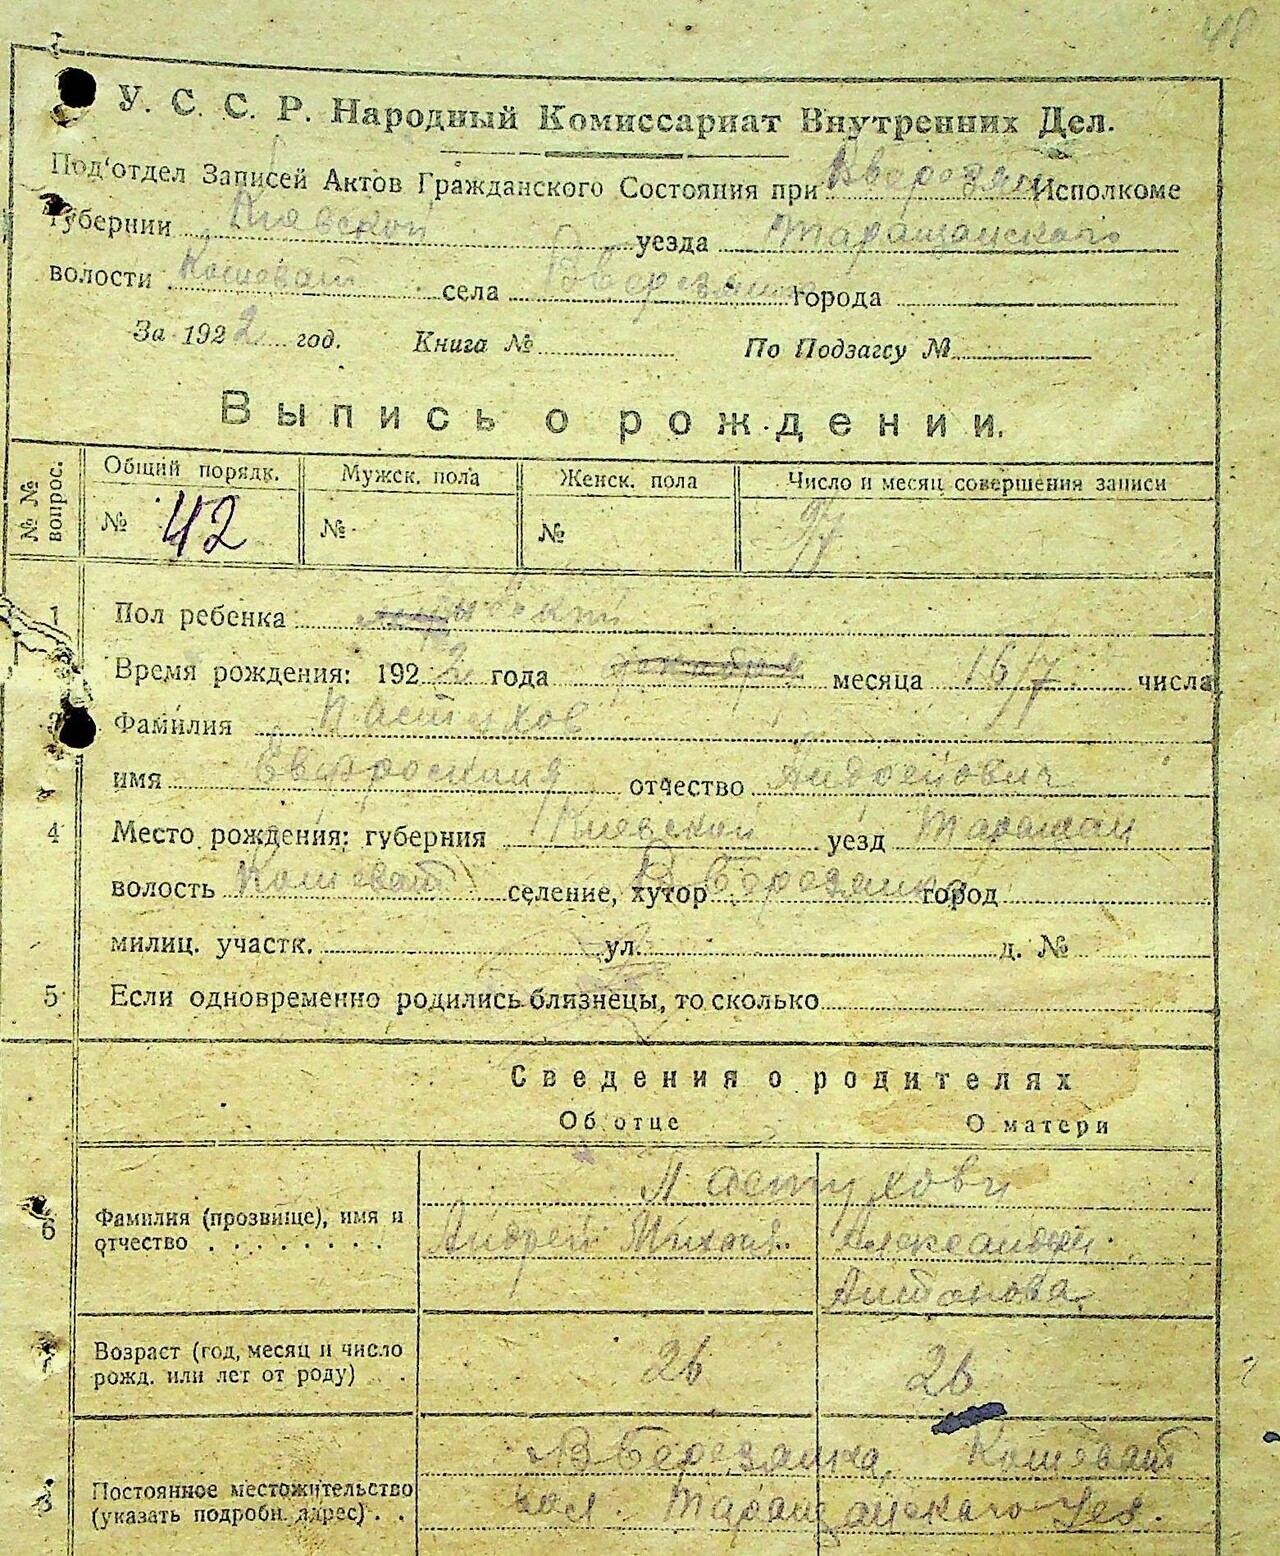 48
У. С. С. Р. Народный Комиссариат Внутренних Дел.
Под‘отдел Записей Актов Гражданского Состояния при Исполкоме
Губернии Киевской уезда Таращанского
волости Кошеват села города
За 1922 год. Книга № По Подзагсу №
Выпись о рождении.
№ № вопрос. Общий порядк. Мужск. пола Женск. пола Число и месяц совершения записи
№ 42 № №
1 Пол ребенка
Время рождения: 1922 года декабря месяца 16/7 числа
3 Фамилия Пастухов
имя Евфросиния отчество Андреевич
4 Место рождения: губерния Киевской уезд Таращан
волость Кошеват селение, хутор В Березянка город
милиц. участк. ул. д. №
5 Если одновременно родились близнецы, то сколько
Сведения о родителях
Об отце О матери
Пастухови
6 Фамилия (прозвище), имя и Андрей Михайл. Александр.
отчество Антонова
7 Возраст (год, месяц и число 26 26
рожд. или лет от роду)
В Березянка, Кошеват
8 Постоянное местожительство вол. Таращанского Уез.
(указать подробн. адрес)